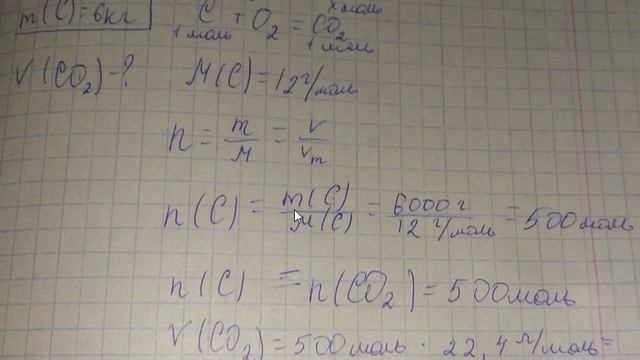 m(C)=6кг
x моль
C + O₂ = CO₂
1 моль 1 моль
V(CO₂)-? M(C)=12 г/моль
n = m/M = V/Vm
n(C) = m(C)/M(C) = 6000г/12 г/моль = 500 моль
n(C) = n(CO₂) = 500 моль
V(CO₂)=500 моль · 22,4 л/моль=